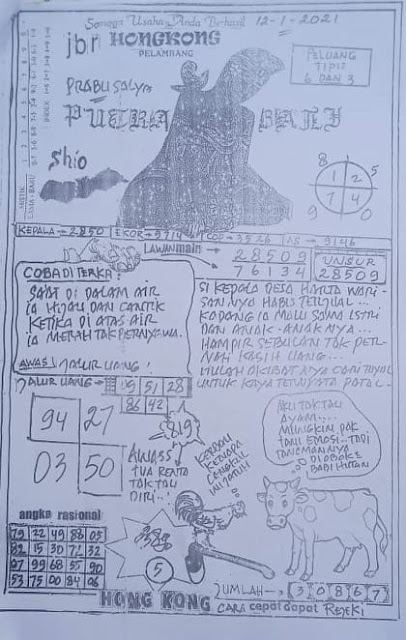 Semoga Usaha Anda Berhasil 12-1-2021
jbr HONGKONG
PELAMBANG
PELUANG
TIPIS
6 DAN 3
PRABU SALYA
PUTRA BALI
Shio
8 5
1 2
7 4
9 0
KEPALA → 2850 EKOR → 9714 COP → 3526 AS → 9146
LAWAN main
28509
76134
UNSUR
28509
COBA DI TERKA:
SAAT DI DALAM AIR
IA HIJAU DAN CANTIK
KETIKA DI ATAS AIR
IA MERAH TAK PERNYAWA.
AWAS! JALUR UANG!
SI KEPALA DESA HARTA WARI-
SAN NYA HABIS TERJUAL...
KADANG IA MALU SAMA ISTRI
DAN ANAK-ANAKNYA...
HAMPIR SEBULAN TAK PER-
NAH KASIH UANG...
UNTUK KAYA TERNYATA
JALUR UANG → 19 51 28
86 42
94 27
03 50
819
AWASS
TUA RENTA
TAK TAU
DIRI..!
KEPALA
INI JATUH
AKU TAK TAU
AYAM....
MUNGKIN PAK
TANI EMOSI.. TADI
TANEMANNYA
DI OBOK2
BABI HUTAN
angka rasional
79 22 49 88 03
82 15 30 71 32
07 99 68 55 90
53 75 00 84 96
5
JUMLAH → 3 0 8 6 7
HONG KONG CARA cepat dapat REJEKI